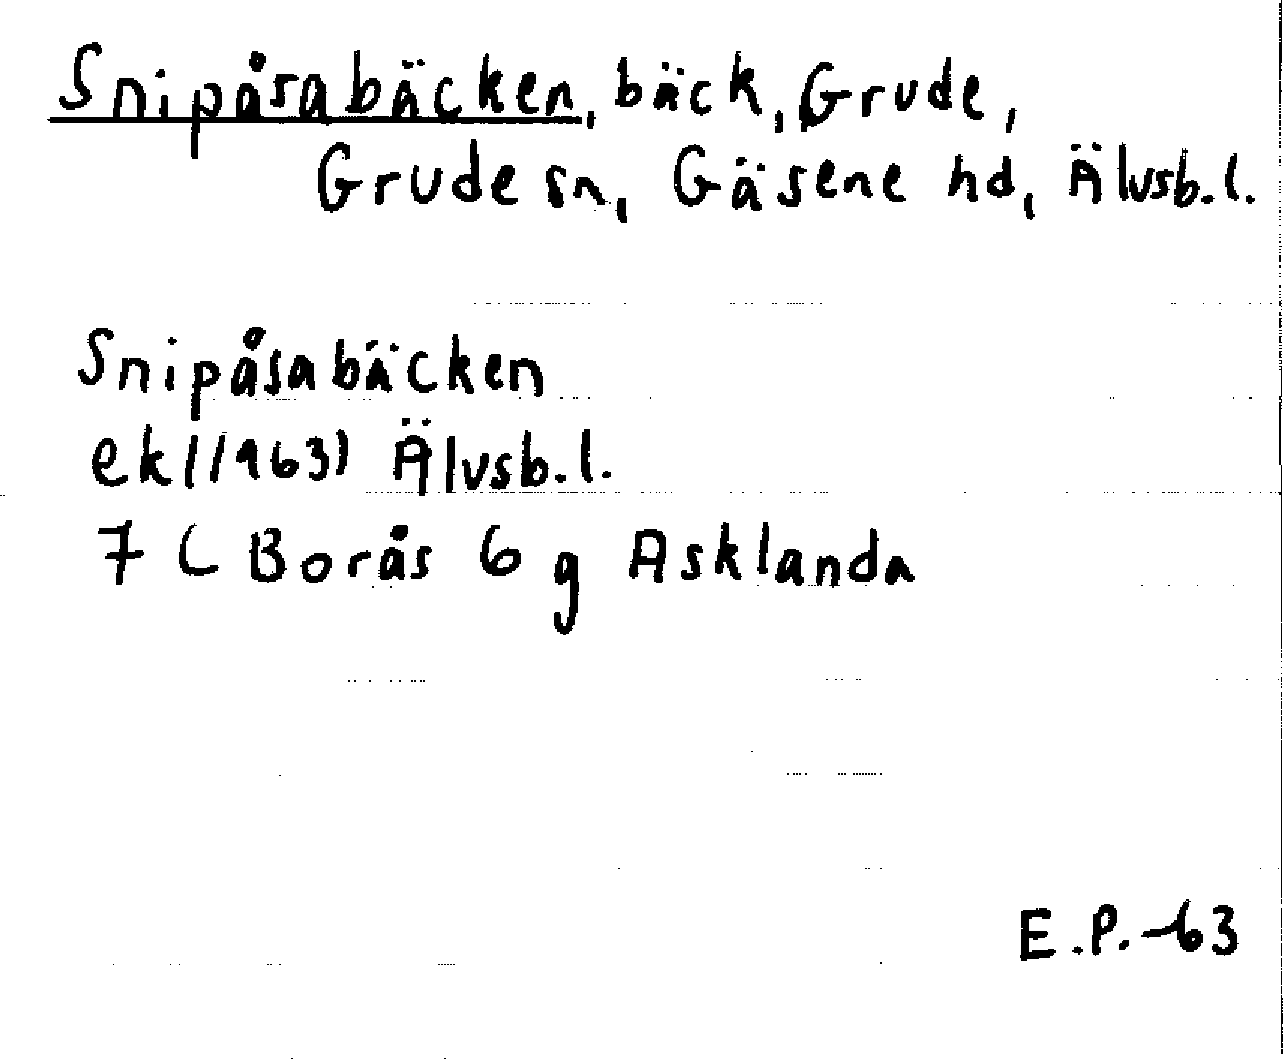 Snipåsabäcken, bäck, Grude,
Grude sn, Gäsene hd, Älvsb.l.
Snipåsabäcken
ek (1963) Älvsb.l.
7 C Borås 6 g Asklanda
E.P.-63